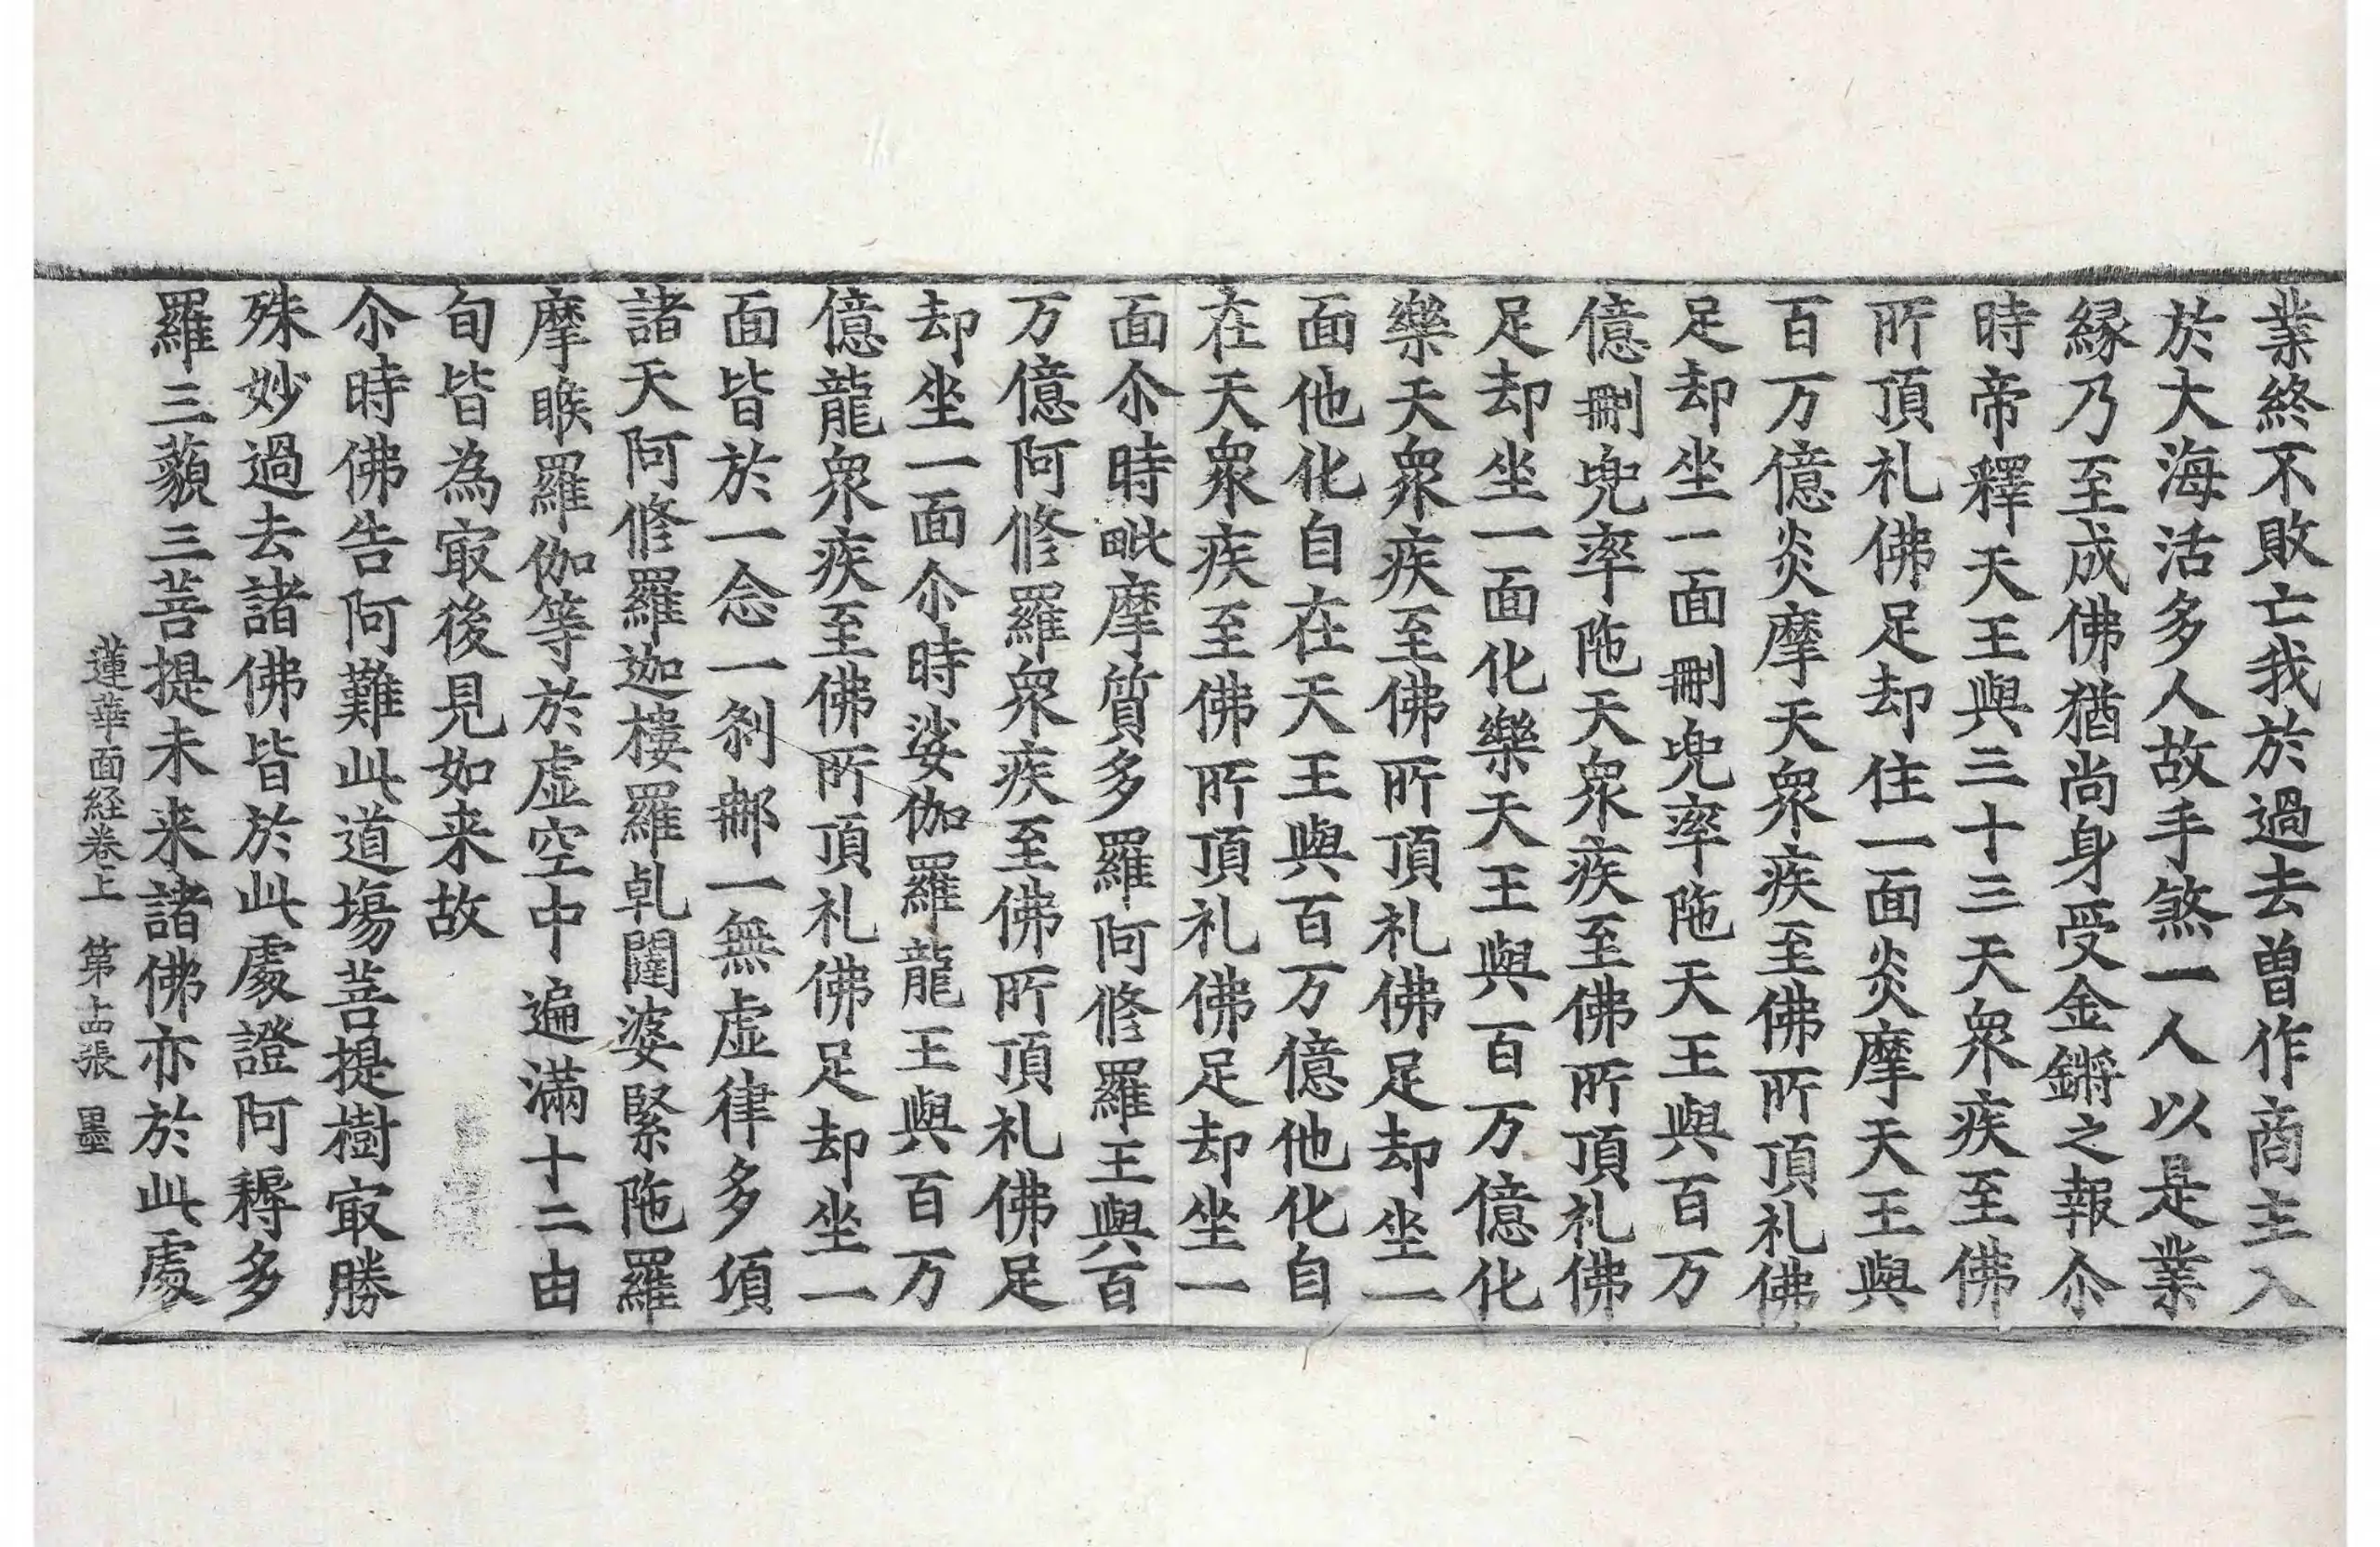 業終不敗亡我於過去曾作商主入
於大海活多人故手煞一人以是業
縁乃至成佛猶尚身受金鏘之報尒
時帝釋天王與三十三天衆疾至佛
所頂礼佛足却住一面炎摩天王與
百万億炎摩天衆疾至佛所頂礼佛
足却坐一面刪兜率陁天王與百万
億刪兜率陁天衆疾至佛所頂礼佛
足却坐一面化樂天王與百万億化
樂天衆疾至佛所頂礼佛足却坐一
面他化自在天王與百万億他化自
在天衆疾至佛所頂礼佛足却坐一
面尒時毗摩質多羅阿修羅王與百
万億阿修羅衆疾至佛所頂礼佛足
却坐一面尒時娑伽羅龍王與百万
億龍衆疾至佛所頂礼佛足却坐一
面皆於一念一刹䣝一無虛律多須
諸天阿修羅迦樓羅乹闥婆緊陁羅
摩睺羅伽等於虛空中遍滿十二由
旬皆為㝡後見如来故
尒時佛告阿難此道場菩提樹㝡勝
殊妙過去諸佛皆於此處證阿耨多
羅三藐三菩提未来諸佛亦於此處
蓮華面経卷上 第十四張 墨